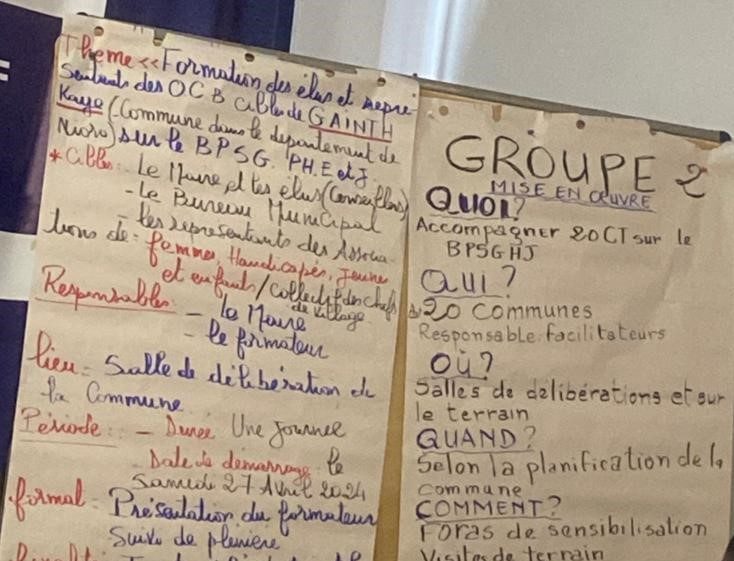 Theme << Formation des élus et repre
sentants des OCB cibles de GAINTH
Kaye (Commune dans le departement de
Nioro) sur le BPSG. PH.E et J.
* Cibles: Le Maire et les élus (Conseillers)
- Le Bureau Municipal
- les représentants des Associa-
tions de: femmes, Handicapés, Jeunes
et enfants / collectif des chefs
de village
Responsables: - le Maire
- le formateur
lieu = Salle de délibération de
la Commune
Période: - Duree Une Journée
Date de démarrage le
Samedi 27 Avril 2024
format = Présentation du formateur
Suivi de pleniere
GROUPE 2
MISE EN ŒUVRE
QUOI?
Accompagner 20 CT sur le
BPSGHJ
QUI?
20 communes
Responsable: facilitateurs
OÙ?
Salles de délibérations et sur
le terrain
QUAND?
Selon la planification de la
commune
COMMENT?
Foras de sensibilisation
Visites de terrain